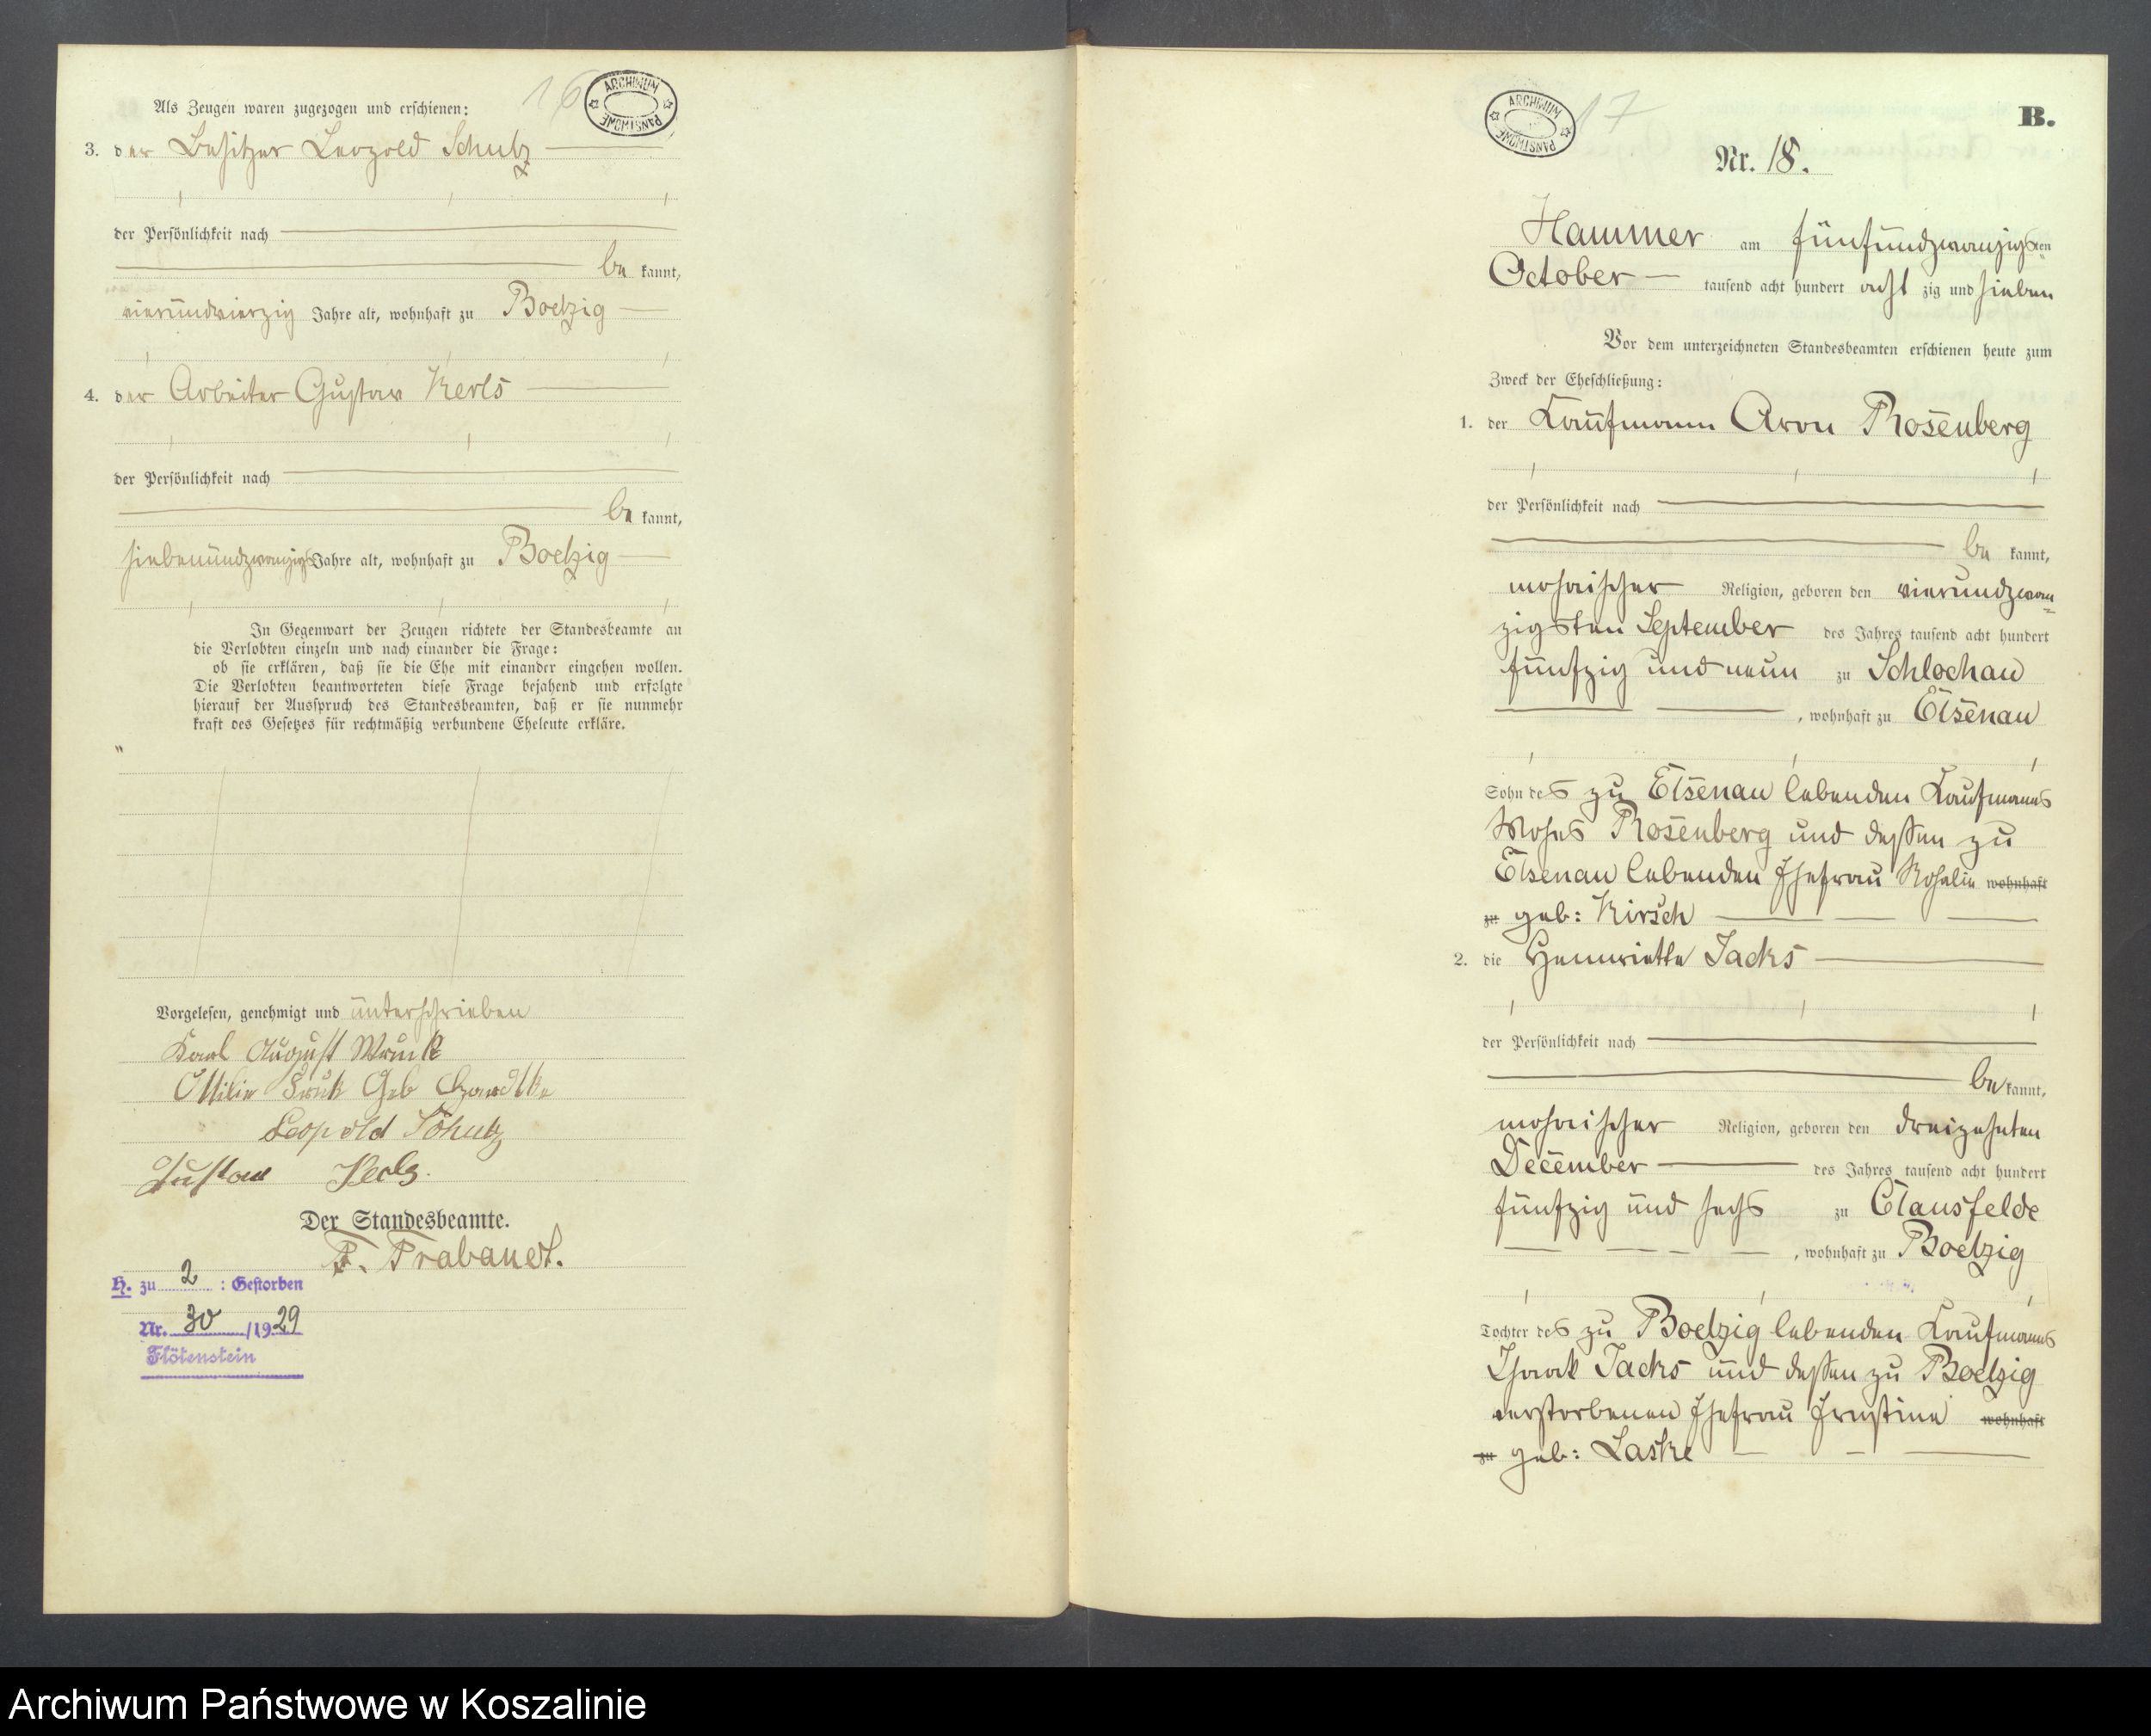 16
ARCHIWUM PAŃSTWOWE
Als Zeugen waren zugezogen und erschienen:
3. der Besitzer Leopold Schulz
der Persönlichkeit nach
be kannt,
vierundvierzig Jahre alt, wohnhaft zu Boetzig
4. der Arbeiter Gustav Kerls
der Persönlichkeit nach
be kannt,
siebenundzwanzig Jahre alt, wohnhaft zu Boetzig
In Gegenwart der Zeugen richtete der Standesbeamte an
die Verlobten einzeln und nach einander die Frage:
ob sie erklären, daß sie die Ehe mit einander eingehen wollen.
Die Verlobten beantworteten diese Frage bejahend und erfolgte
hierauf der Ausspruch des Standesbeamten, daß er sie nunmehr
kraft des Gesetzes für rechtmäßig verbundene Eheleute erkläre.
Vorgelesen, genehmigt und unterschrieben
Karl August Wruck
Ottilie Geb
Leopold Schulz
Gustav Kerls.
Der Standesbeamte.
F. Trabandt.
H. zu 2 : Gestorben
Nr. 30 /1929
Flötenstein
ARCHIWUM PAŃSTWOWE
17
B.
Nr. 18.
Hammer am fünfundzwanzigsten
October tausend acht hundert acht zig und sieben
Vor dem unterzeichneten Standesbeamten erschienen heute zum
Zweck der Eheschließung:
1. der Kaufmann Aron Rosenberg
der Persönlichkeit nach
be kannt,
mosaischer Religion, geboren den vierundzwan=
zigsten September des Jahres tausend acht hundert
fünfzig und neun zu Schlochau
, wohnhaft zu Elsenau
Sohn des zu Elsenau lebenden Kaufmanns
Moses Rosenberg und dessen zu
Elsenau lebenden Ehefrau Rosalie wohnhaft
zu geb: Kirsch
2. die Hennriette Jacks
der Persönlichkeit nach
be kannt,
mosaischer Religion, geboren den dreizehnten
December des Jahres tausend acht hundert
fünfzig und sechs zu Clausfelde
, wohnhaft zu Boetzig
Tochter des zu Boetzig lebenden Kaufmanns
Isaak Jacks und dessen zu Boetzig
verstorbenen Ehefrau Ernstine wohnhaft
zu geb: Laske
Archiwum Państwowe w Koszalinie